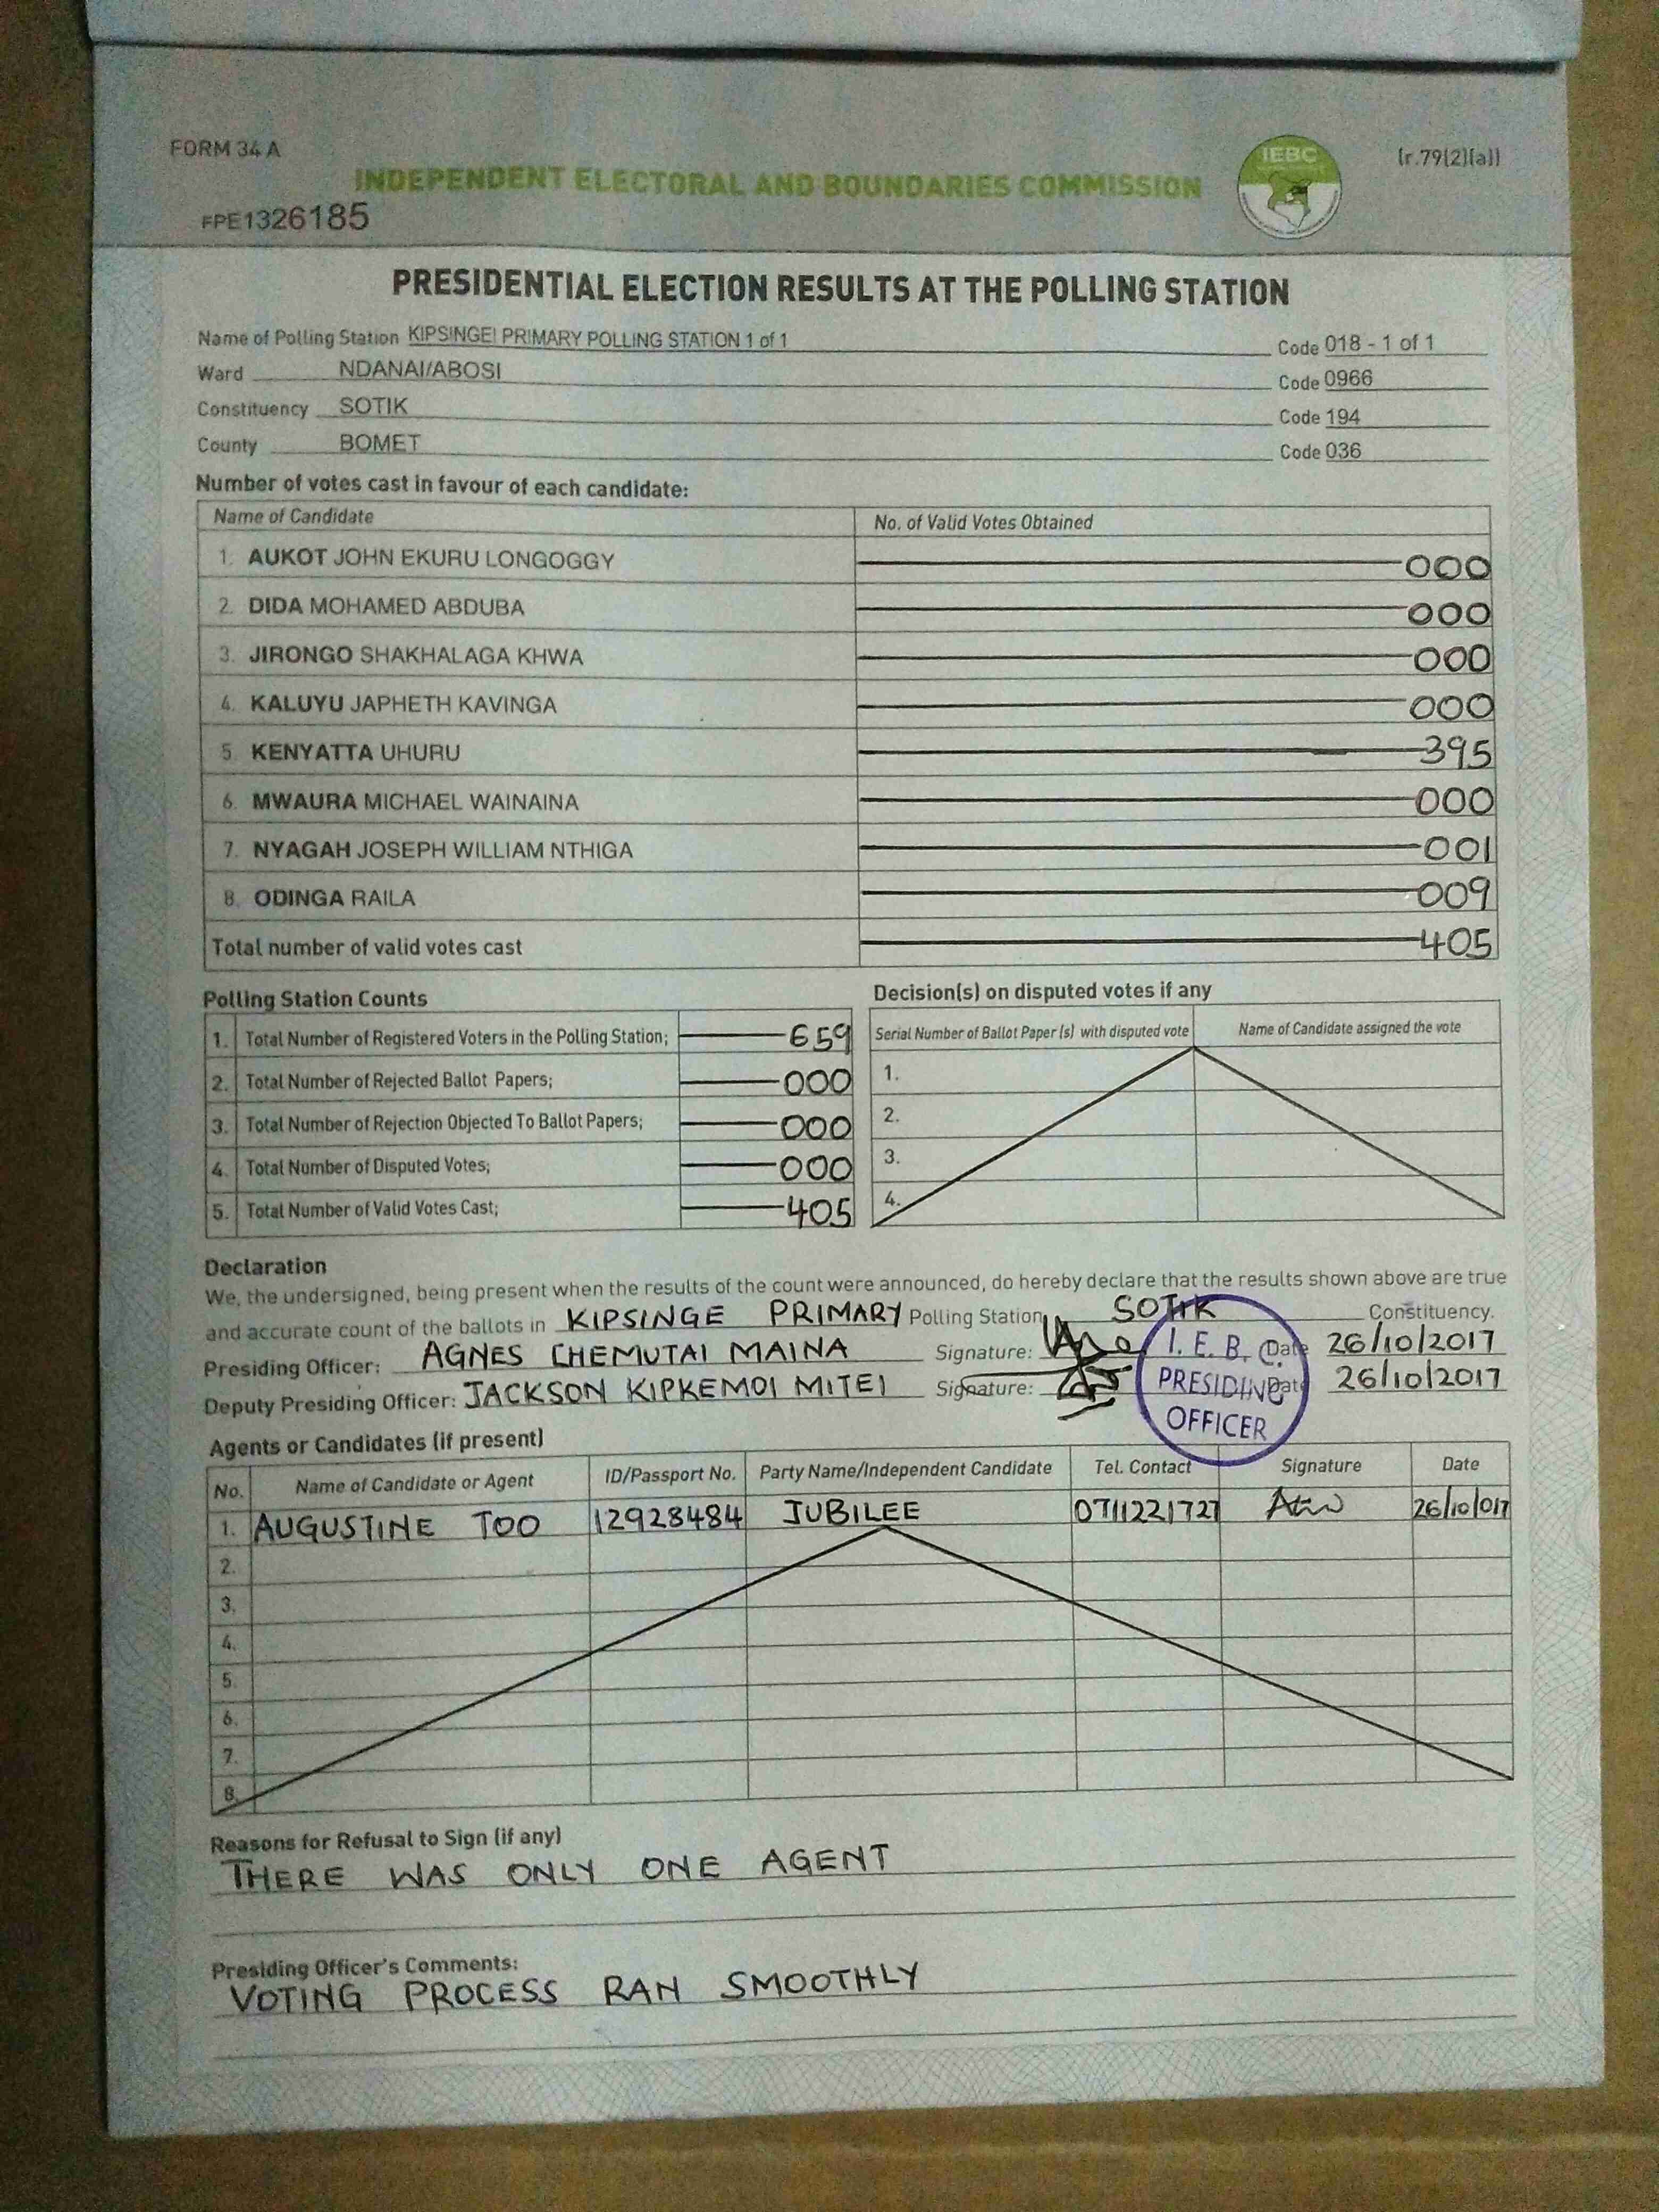 FORM 34 A
(r.79(2)(a))
INDEPENDENT ELECTORAL AND BOUNDARIES COMMISSION
IEBC
FPE1326185
PRESIDENTIAL ELECTION RESULTS AT THE POLLING STATION
Name of Polling Station KIPSINGEI PRIMARY POLLING STATION 1 of 1 Code 018 - 1 of 1
Ward NDANAI/ABOSI Code 0966
Constituency SOTIK Code 194
County BOMET Code 036
Number of votes cast in favour of each candidate:
Name of Candidate No. of Valid Votes Obtained
1. AUKOT JOHN EKURU LONGOGGY 000
2. DIDA MOHAMED ABDUBA 000
3. JIRONGO SHAKHALAGA KHWA 000
4. KALUYU JAPHETH KAVINGA 000
5. KENYATTA UHURU 395
6. MWAURA MICHAEL WAINAINA 000
7. NYAGAH JOSEPH WILLIAM NTHIGA 001
8. ODINGA RAILA 009
Total number of valid votes cast 405
Polling Station Counts
1. Total Number of Registered Voters in the Polling Station; 659
2. Total Number of Rejected Ballot Papers; 000
3. Total Number of Rejection Objected To Ballot Papers; 000
4. Total Number of Disputed Votes; 000
5. Total Number of Valid Votes Cast; 405
Decision(s) on disputed votes if any
Serial Number of Ballot Paper (s) with disputed vote Name of Candidate assigned the vote
1.
2.
3.
4.
Declaration
We, the undersigned, being present when the results of the count were announced, do hereby declare that the results shown above are true
and accurate count of the ballots in KIPSINGE PRIMARY Polling Station SOTIK Constituency.
Presiding Officer: AGNES CHEMUTAI MAINA Signature: Date 26/10/2017
Deputy Presiding Officer: JACKSON KIPKEMOI MITEI Signature: Date 26/10/2017
I. E. B. C.
PRESIDING
OFFICER
Agents or Candidates (if present)
No. Name of Candidate or Agent ID/Passport No. Party Name/Independent Candidate Tel. Contact Signature Date
1. AUGUSTINE TOO 12928484 JUBILEE 0711221727 26/10/017
2.
3.
4.
5.
6.
7.
8.
Reasons for Refusal to Sign (if any)
THERE WAS ONLY ONE AGENT
Presiding Officer's Comments:
VOTING PROCESS RAN SMOOTHLY